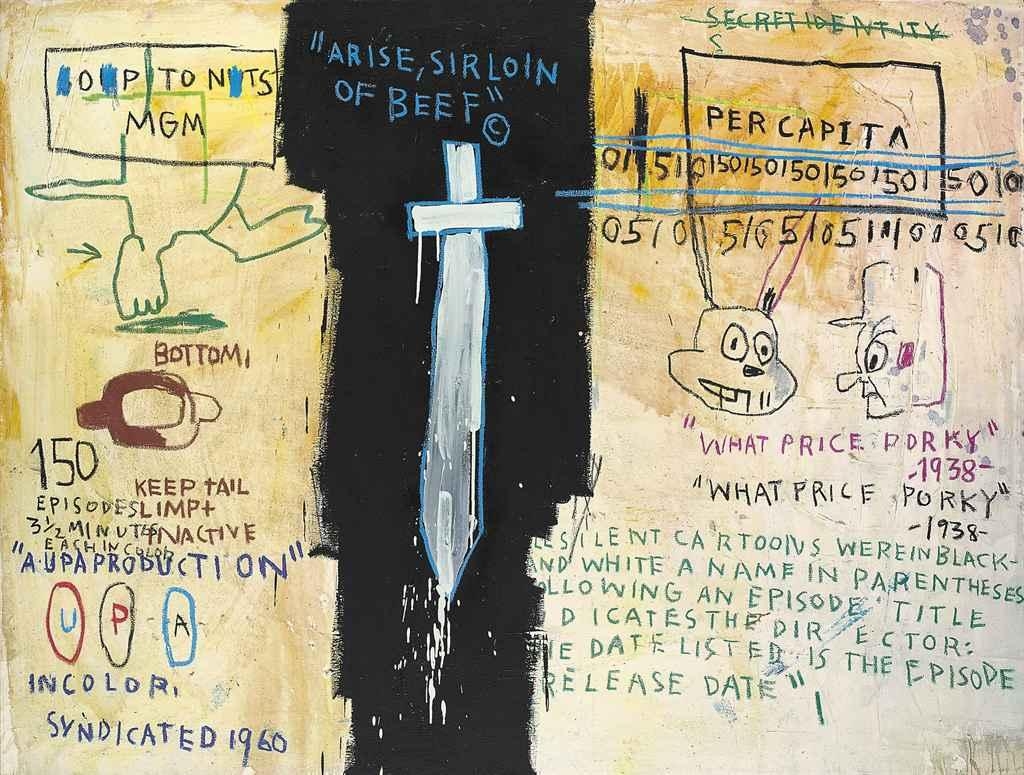 SECRET IDENTITY
S
"ARISE, SIRLOIN
OF BEEF"
©
TO NUTS
MGM
PER CAPITA
BOTTOM,
150
EPISODES
3½ MINUTES
EACH IN COLOR
KEEP TAIL
LIMP+
INACTIVE
"A.UPA PRODUCTION"
U P A
IN COLOR,
SYNDICATED 1960
"WHAT PRICE PORKY"
-1938-
"WHAT PRICE PORKY"
-1938-
SILENT CARTOONS WERE IN BLACK-
AND WHITE A NAME IN PARENTHESES
OLLOWING AN EPISODE TITLE
DICATES THE DIRECTOR:
HE DATE LISTED IS THE EPISODE
RELEASE DATE"